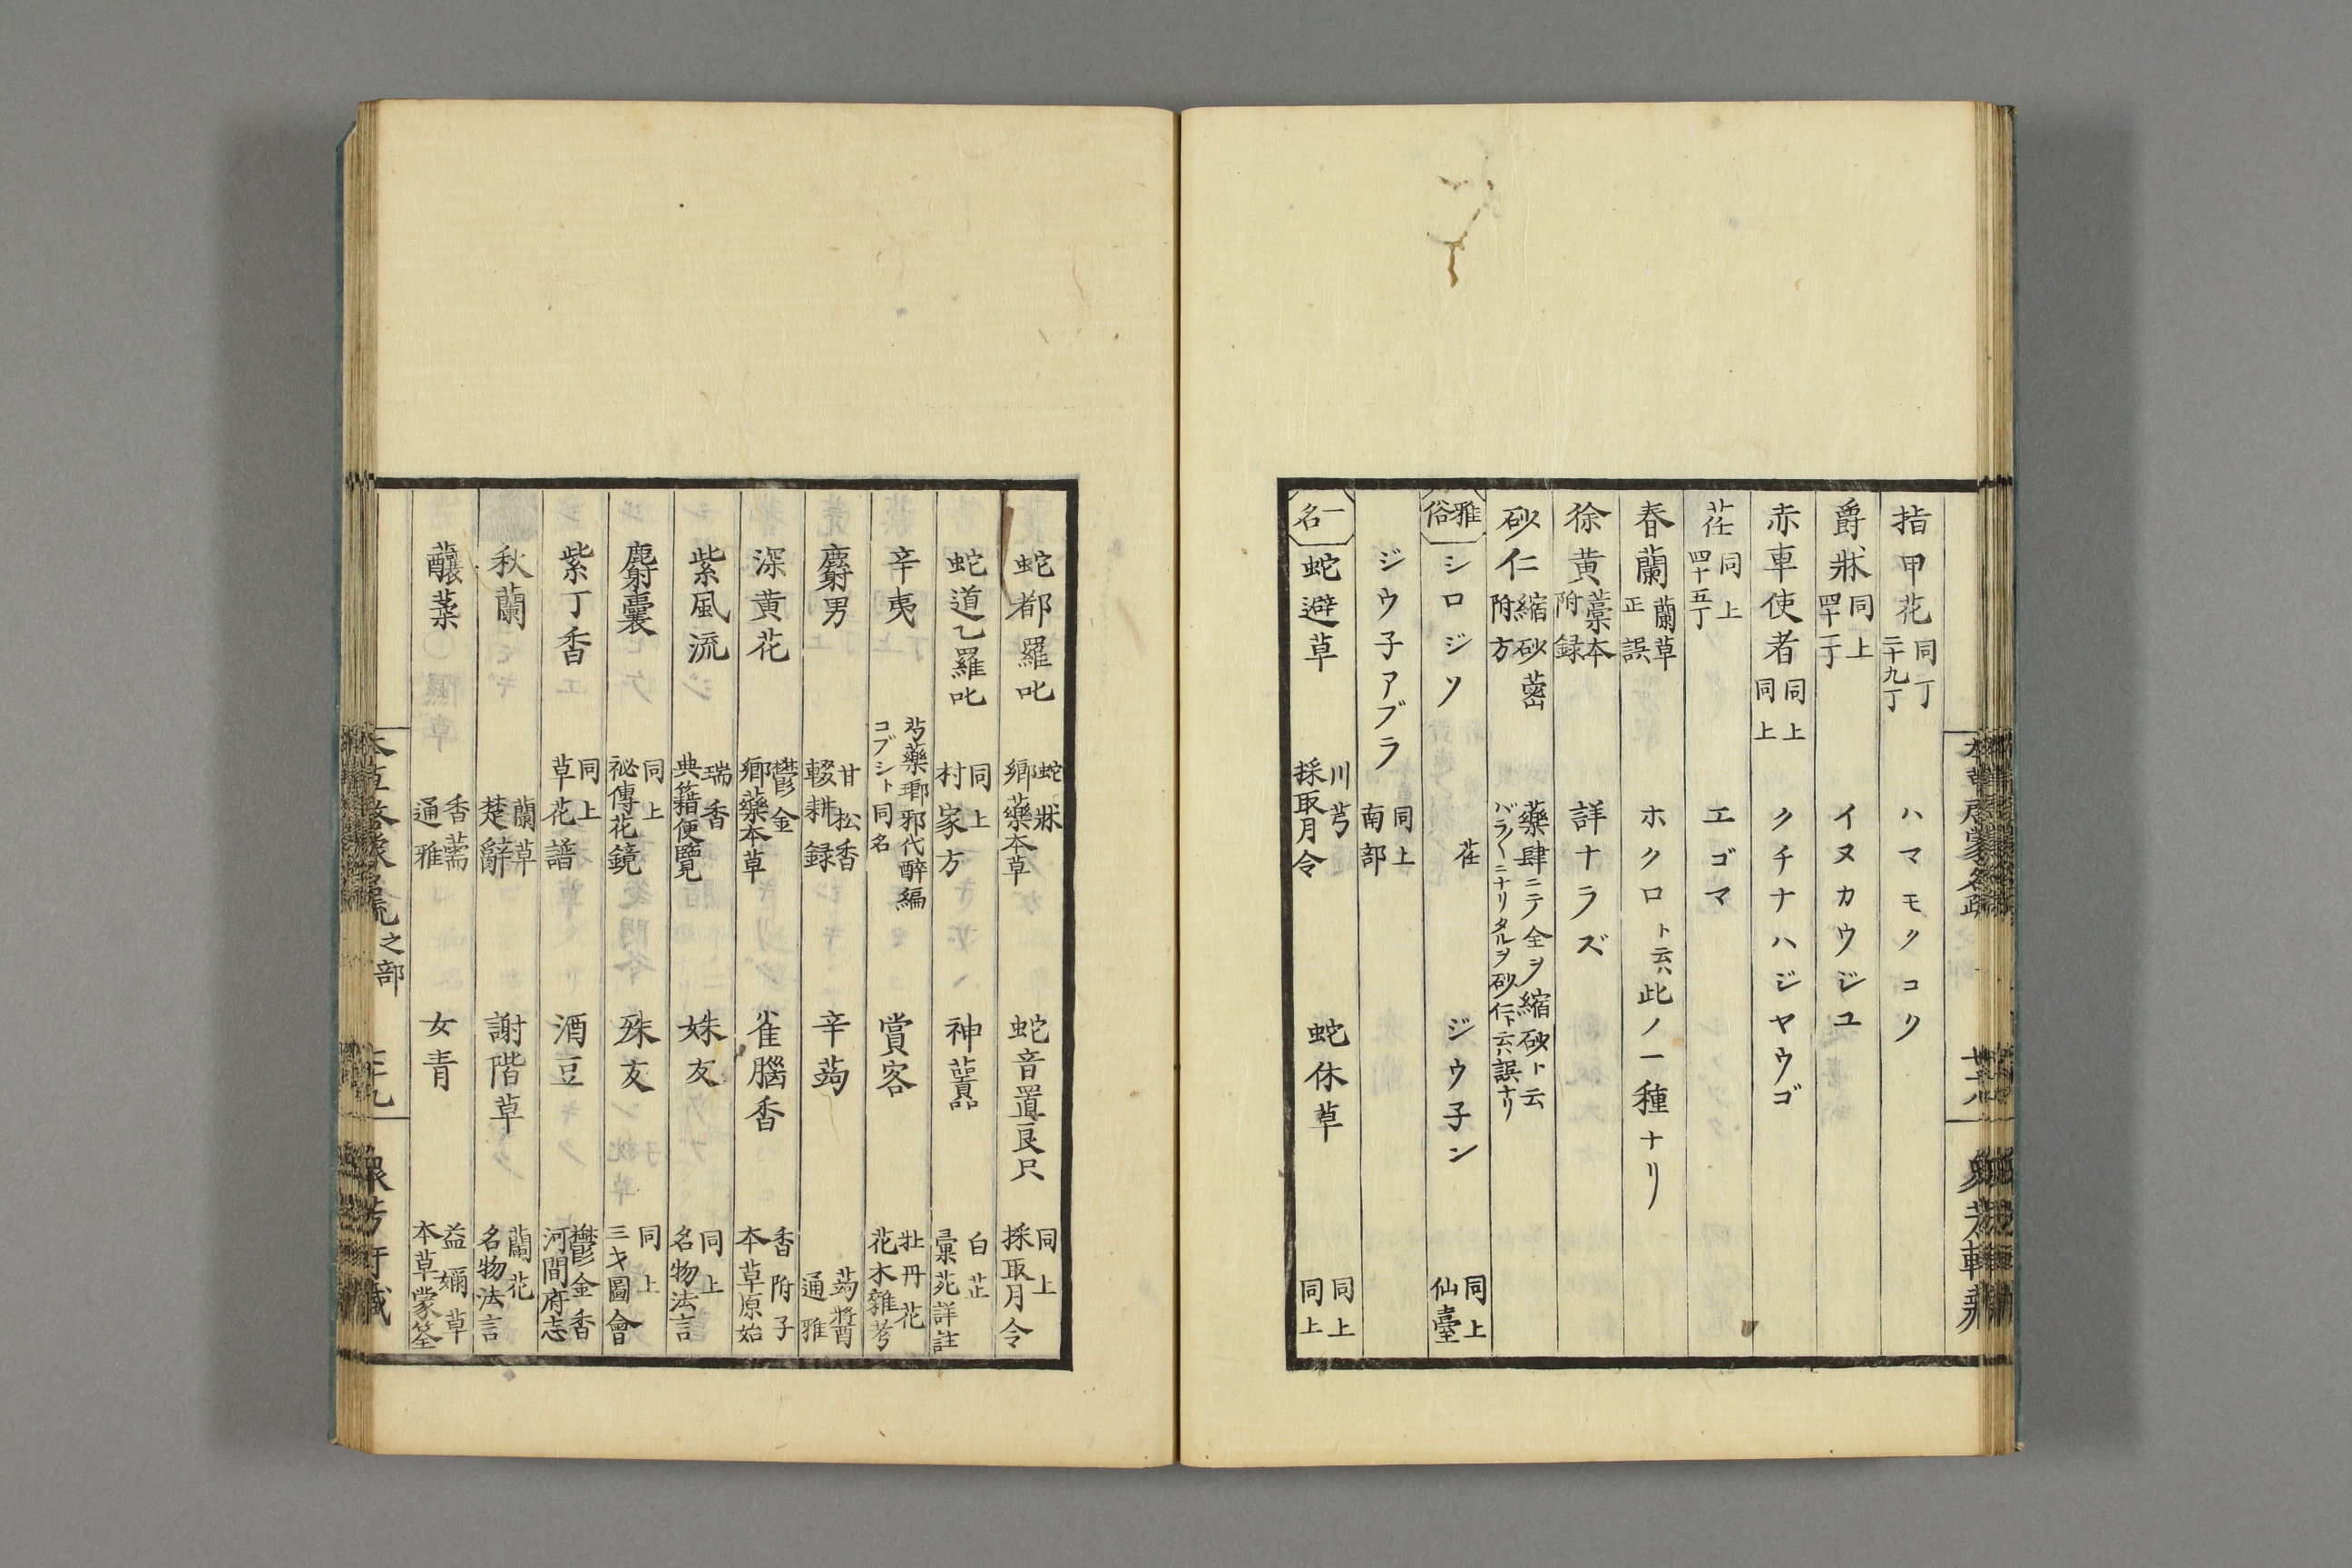 指甲花 同丁 二十九丁 ハマモクコク
爵牀 同上 四十二丁 イヌカウジユ
赤車使者 同上 同上 クチナハジヤウゴ
荏 同上 四十五丁 エゴマ
春蘭 蘭草 正誤 ホクロト云ハ此ノ一種ナリ
徐黄 藁本 附録 詳ナラズ
砂仁 縮砂蔤 附方 藥肆ニテ全ヲ縮砂ト云 バラ〱ニナリタルヲ砂仁ト云ハ誤ナリ
雅俗 シロジソ 荏 ジウ子ン 同上 仙臺
ジウ子アブラ 同上 南部
一名 蛇避草 川芎 採取月令 蛇休草 同上 同上
蛇都羅叱 蛇牀 鄉藥本草 蛇音置良只 同上 採取月令
蛇道乙羅叱 同上 村家方 神蕢 白芷 彙苑詳註
辛夷 芍藥 瑯邪代醉編 コブシト同名 賞客 牡丹花 花木雜考
麝男 甘松香 輟耕録 辛蒟 蒟醬 通雅
深黄花 鬱金 鄉藥本草 雀腦香 香附子 本草原始
紫風流 瑞香 典籍便覽 姝友 同上 名物法言
麝囊 同上 祕傳花鏡 殊友 同上 三才圖會
紫丁香 同上 草花譜 酒豆 鬱金香 河間府志
秋蘭 蘭草 楚辭 謝階草 蘭花 名物法言
蘘菜 香薷 通雅 女青 益嬭草 本草蒙筌